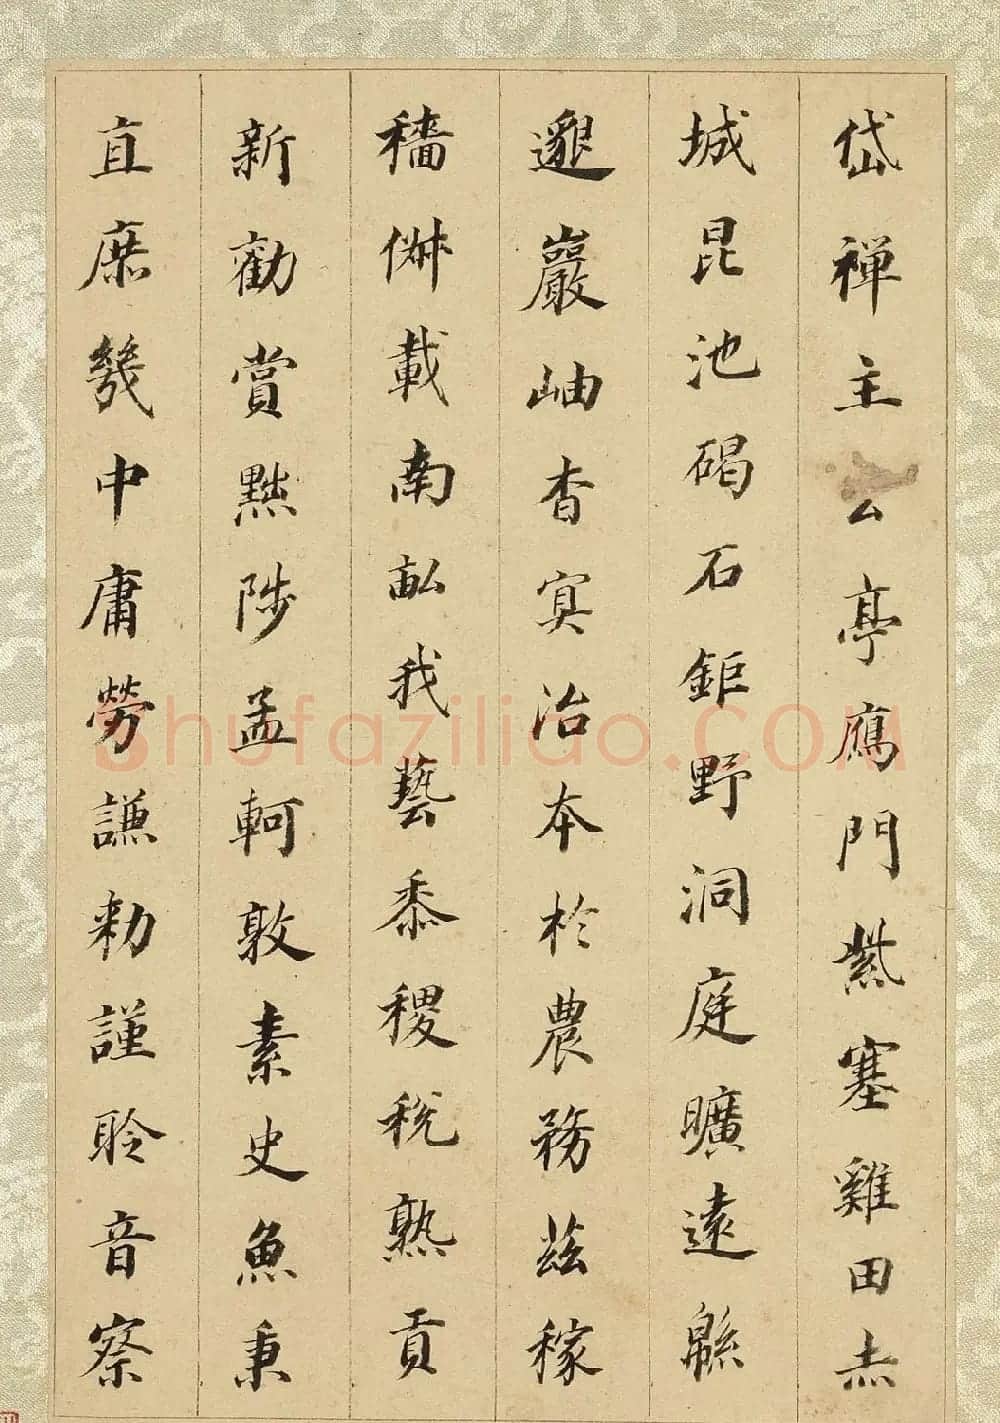 岱禅主云亭鴈門紫塞雞田赤
城昆池碣石鉅野洞庭曠遠緜
邈巖岫杳冥治本於農務茲稼
穡俶載南畝我藝黍稷稅熟貢
新勸賞黜陟孟軻敦素史魚秉
直庶幾中庸勞謙勑謹聆音察
shufaziliao.COM